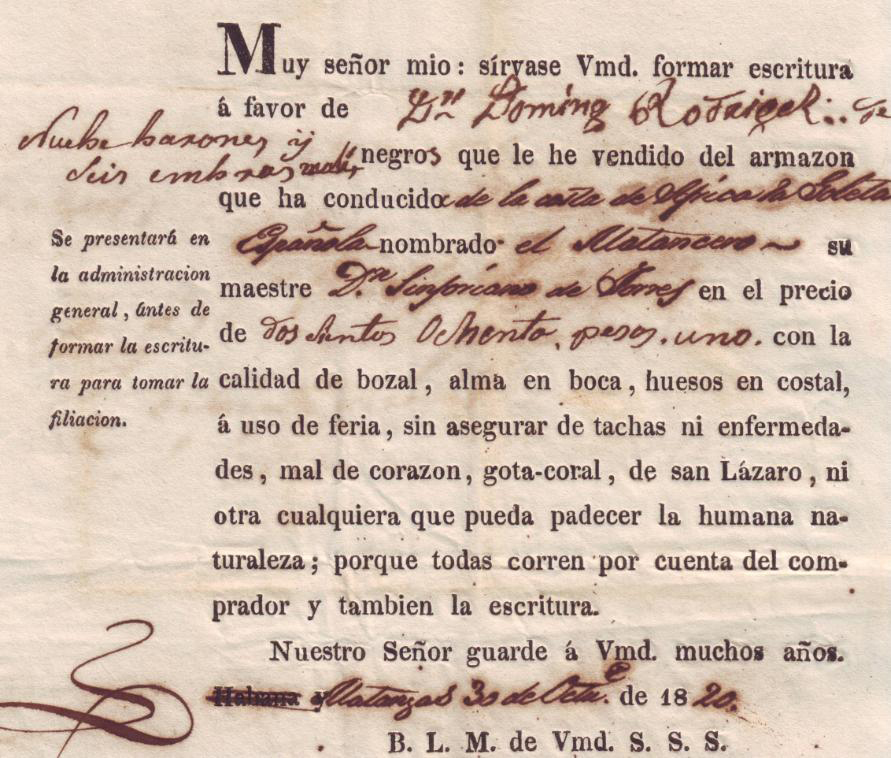 Muy señor mio: sírvase Vmd. formar escritura
á favor de Dn Doming Rodriguez de
Nuebe barones y
seis embras
negros que le he vendido del armazon
que ha conducido de la costa de Africa la Goleta
Española nombrado el Matancero su
maestre Dn Sinforiano de Torres en el precio
de dos sientos Ochenta pesos. uno. con la
calidad de bozal, alma en boca, huesos en costal,
á uso de feria, sin asegurar de tachas ni enfermeda-
des, mal de corazon, gota-coral, de san Lázaro, ni
otra cualquiera que pueda padecer la humana na-
turaleza; porque todas corren por cuenta del com-
prador y tambien la escritura.
Se presentará en
la administracion
general, ántes de
formar la escritu-
ra para tomar la
filiacion.
Nuestro Señor guarde á Vmd. muchos años.
Habana y Matanzas 30 de Octue. de 1820.
B. L. M. de Vmd. S. S. S.